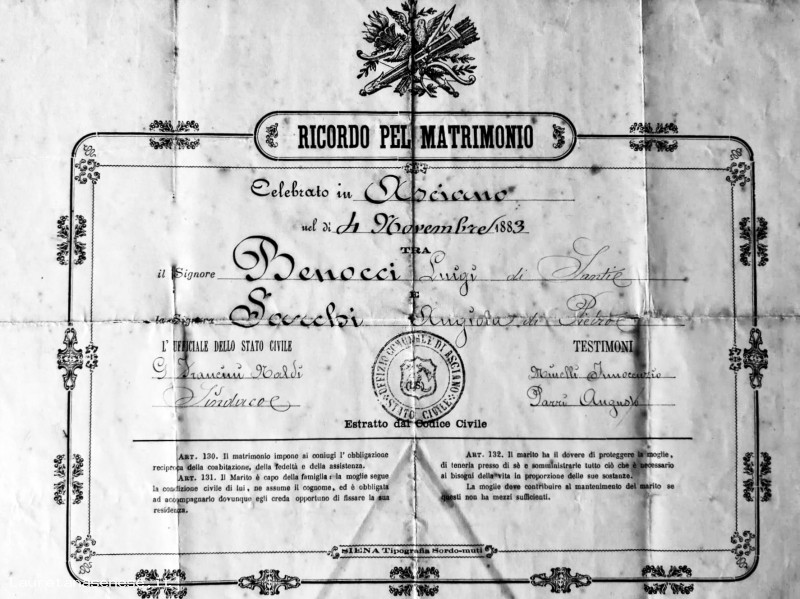 RICORDO PEL MATRIMONIO
Celebrato in Asciano
nel dì 4 Novembre 1883
TRA
il Signore Benocci Luigi di Santi
E
la Signora Angiola di Pietro
L' UFFICIALE DELLO STATO CIVILE
TESTIMONI
G. Naldi
Sindaco
Minelli Innocenzio
Parri Augusto
UFFIZIO COMUNALE DI ASCIANO
STATO CIVILE
Estratto dal Codice Civile
ART. 130. Il matrimonio impone ai coniugi l' obbligazione
reciproca della coabitazione, della fedeltà e della assistenza.
ART. 131. Il Marito è capo della famiglia: la moglie segue
la condizione civile di lui, ne assume il cognome, ed è obbligata
ad accompagnarlo dovunque egli creda opportuno di fissare la sua
residenza.
ART. 132. Il marito ha il dovere di proteggere la moglie,
di tenerla presso di sè e somministrarle tutto ciò che è necessario
ai bisogni della vita in proporzione delle sue sostanze.
La moglie deve contribuire al mantenimento del marito se
questi non ha mezzi sufficienti.
SIENA Tipografia Sordo-muti